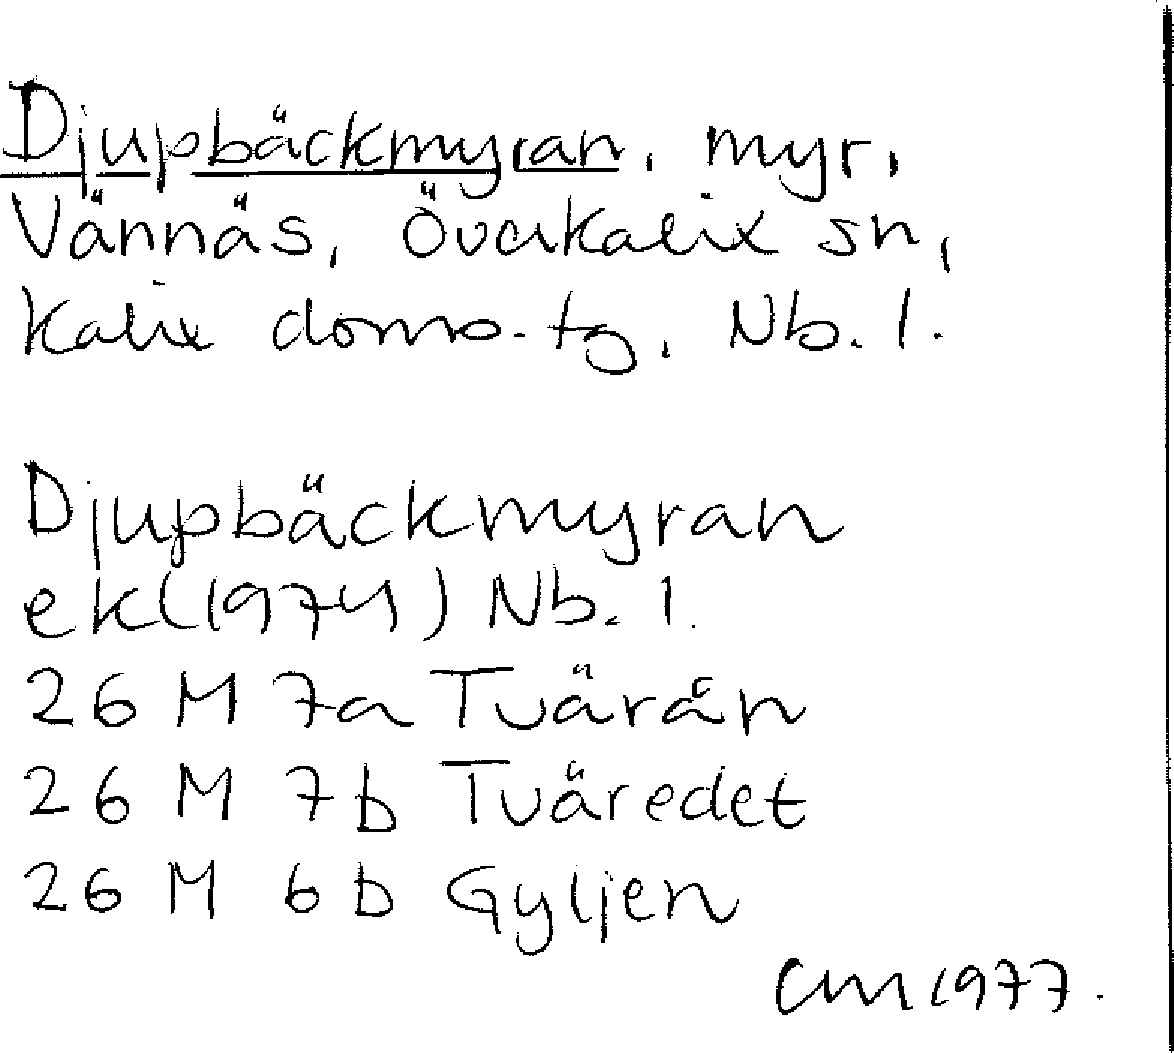 Djupbäckmyran, myr,
Vännäs, Överkalix sn,
Kalix doms.tg, Nb. l.
Djupbäckmyran
ek(1974) Nb. l.
26 M 7a Tvärån
26 M 7b Tväredet
26 M 6b Gyljen
CM 1977.